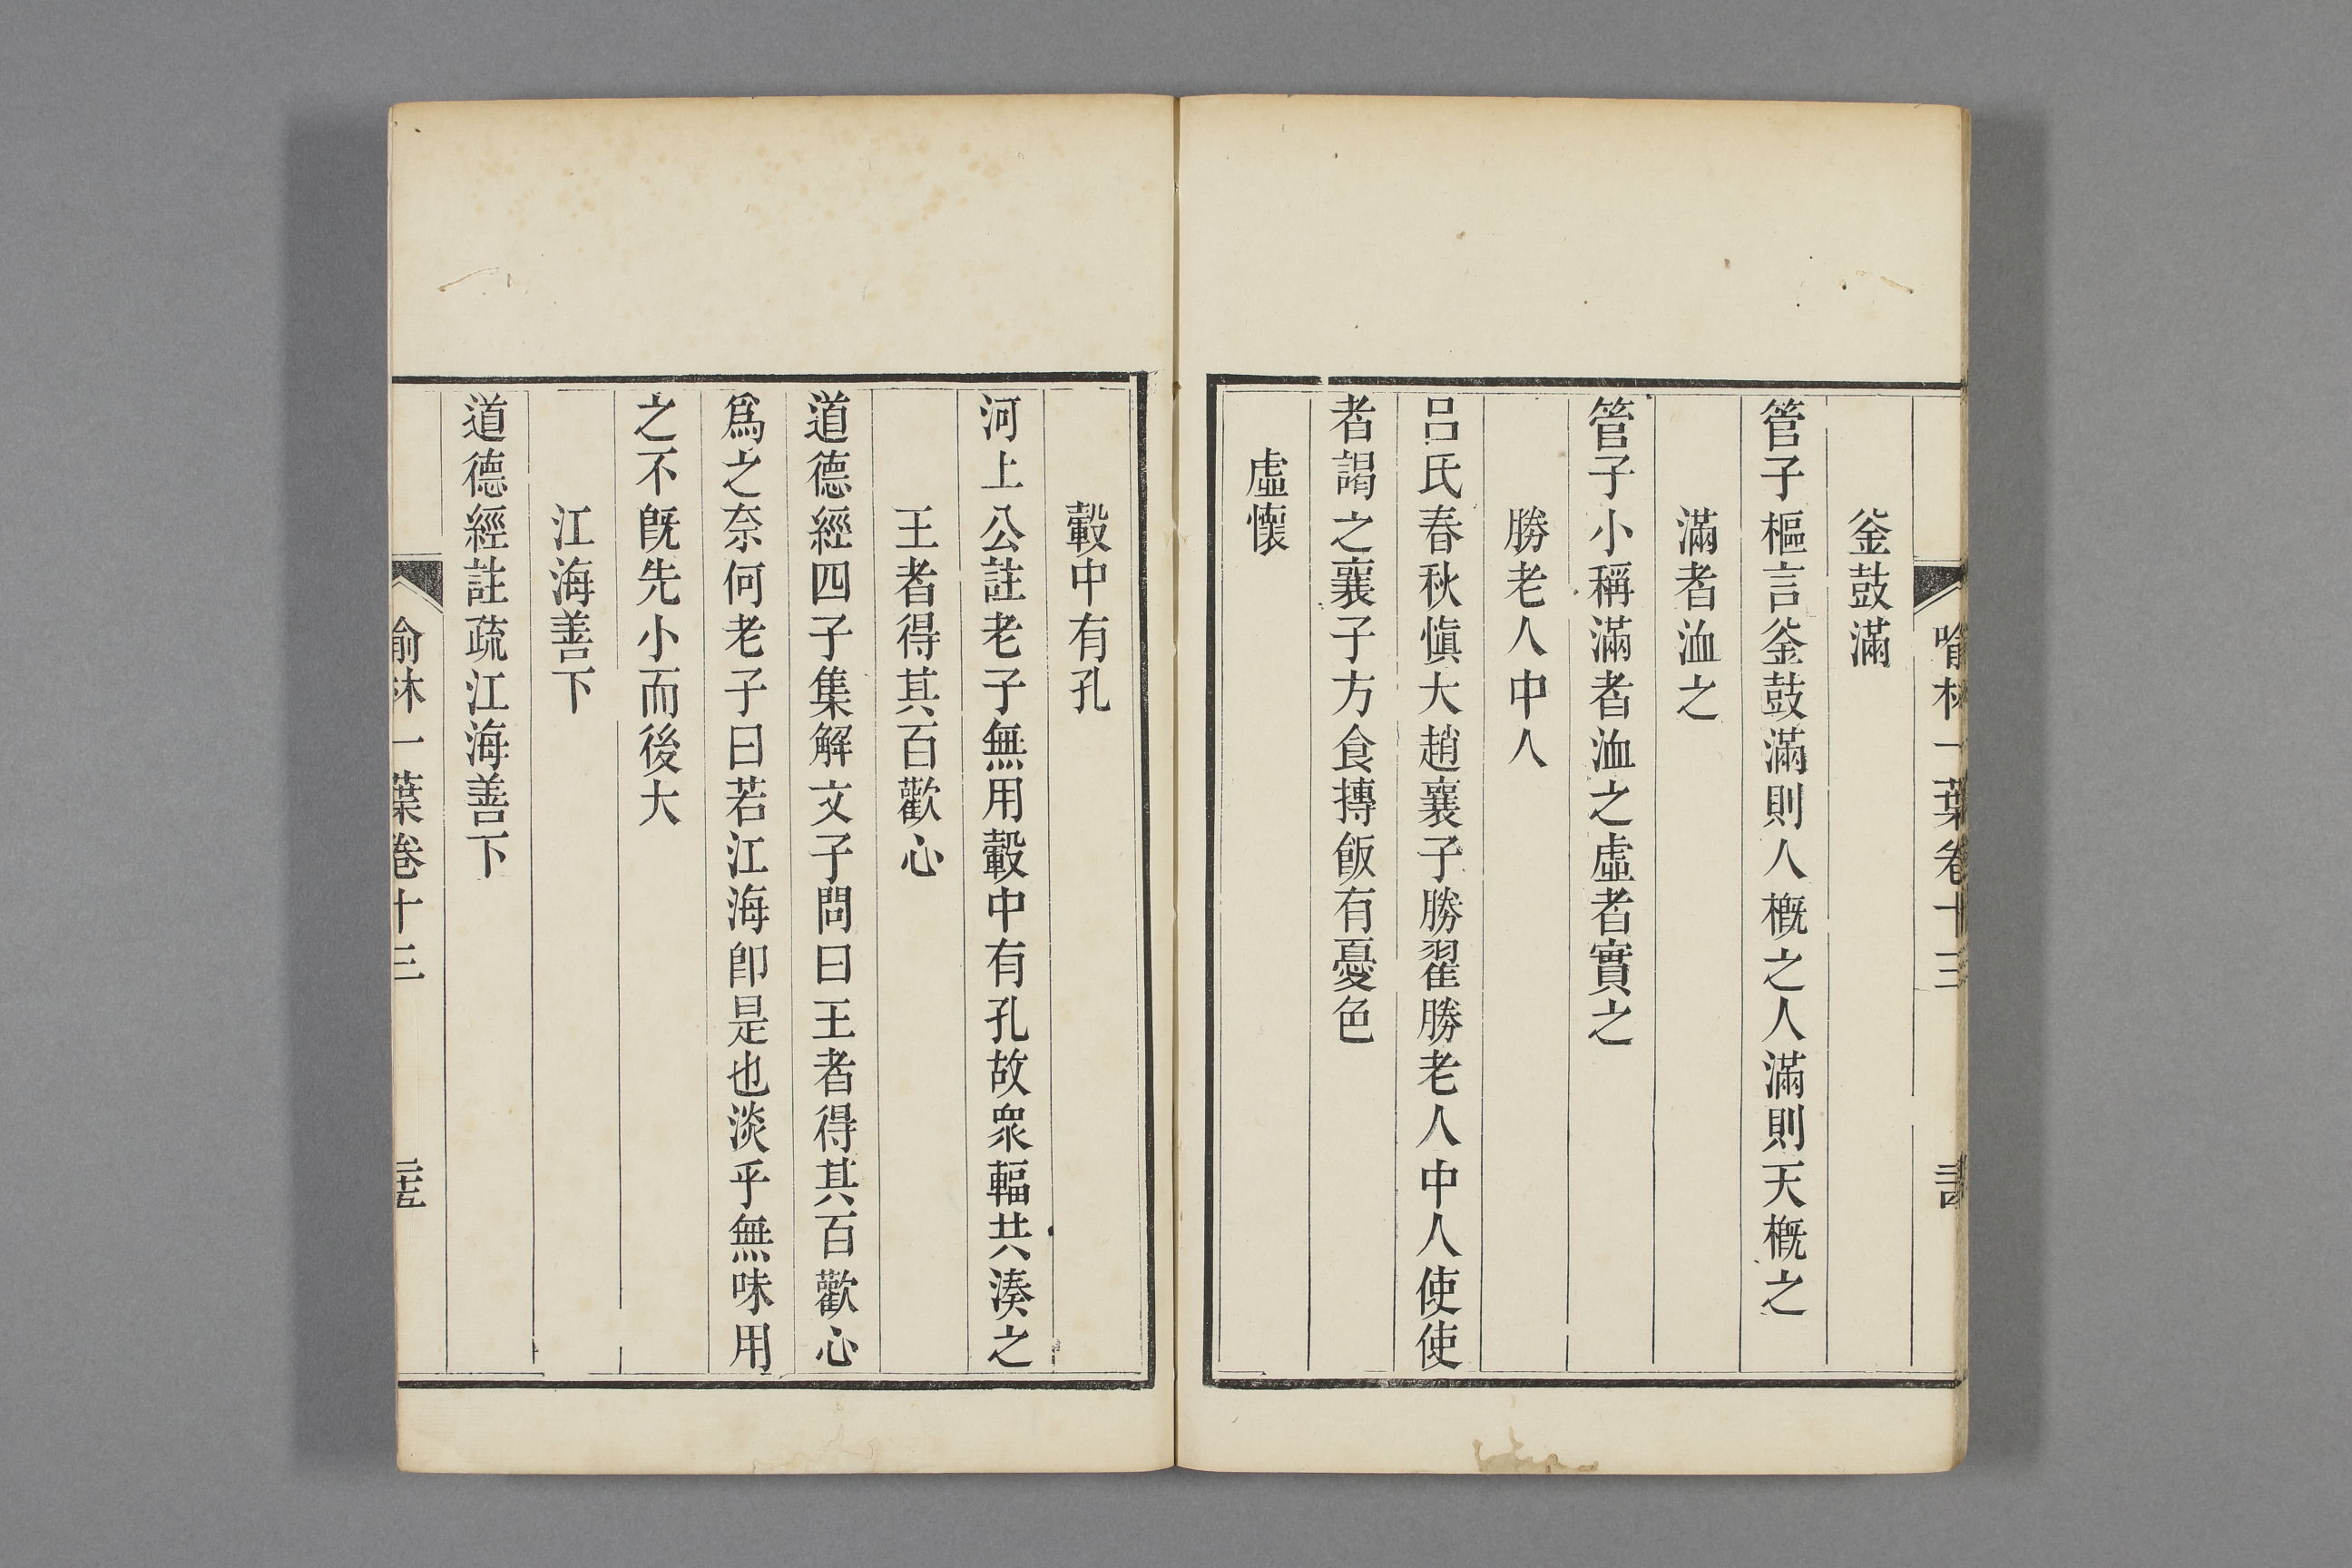 喻林一葉卷十三
釜鼓滿
管子樞言釜鼓滿則人概之人滿則天概之
滿者洫之
管子小稱滿者洫之虛者實之
勝老人中人
呂氏春秋愼大趙襄子勝翟勝老人中人使使
者謁之襄子方食摶飯有憂色
虛懷
轂中有孔
河上公註老子無用轂中有孔故衆輻共湊之
王者得其百歡心
道德經四子集解文子問曰王者得其百歡心
爲之奈何老子曰若江海卽是也淡乎無味用
之不旣先小而後大
江海善下
道德經註疏江海善下
喻林一葉卷十三